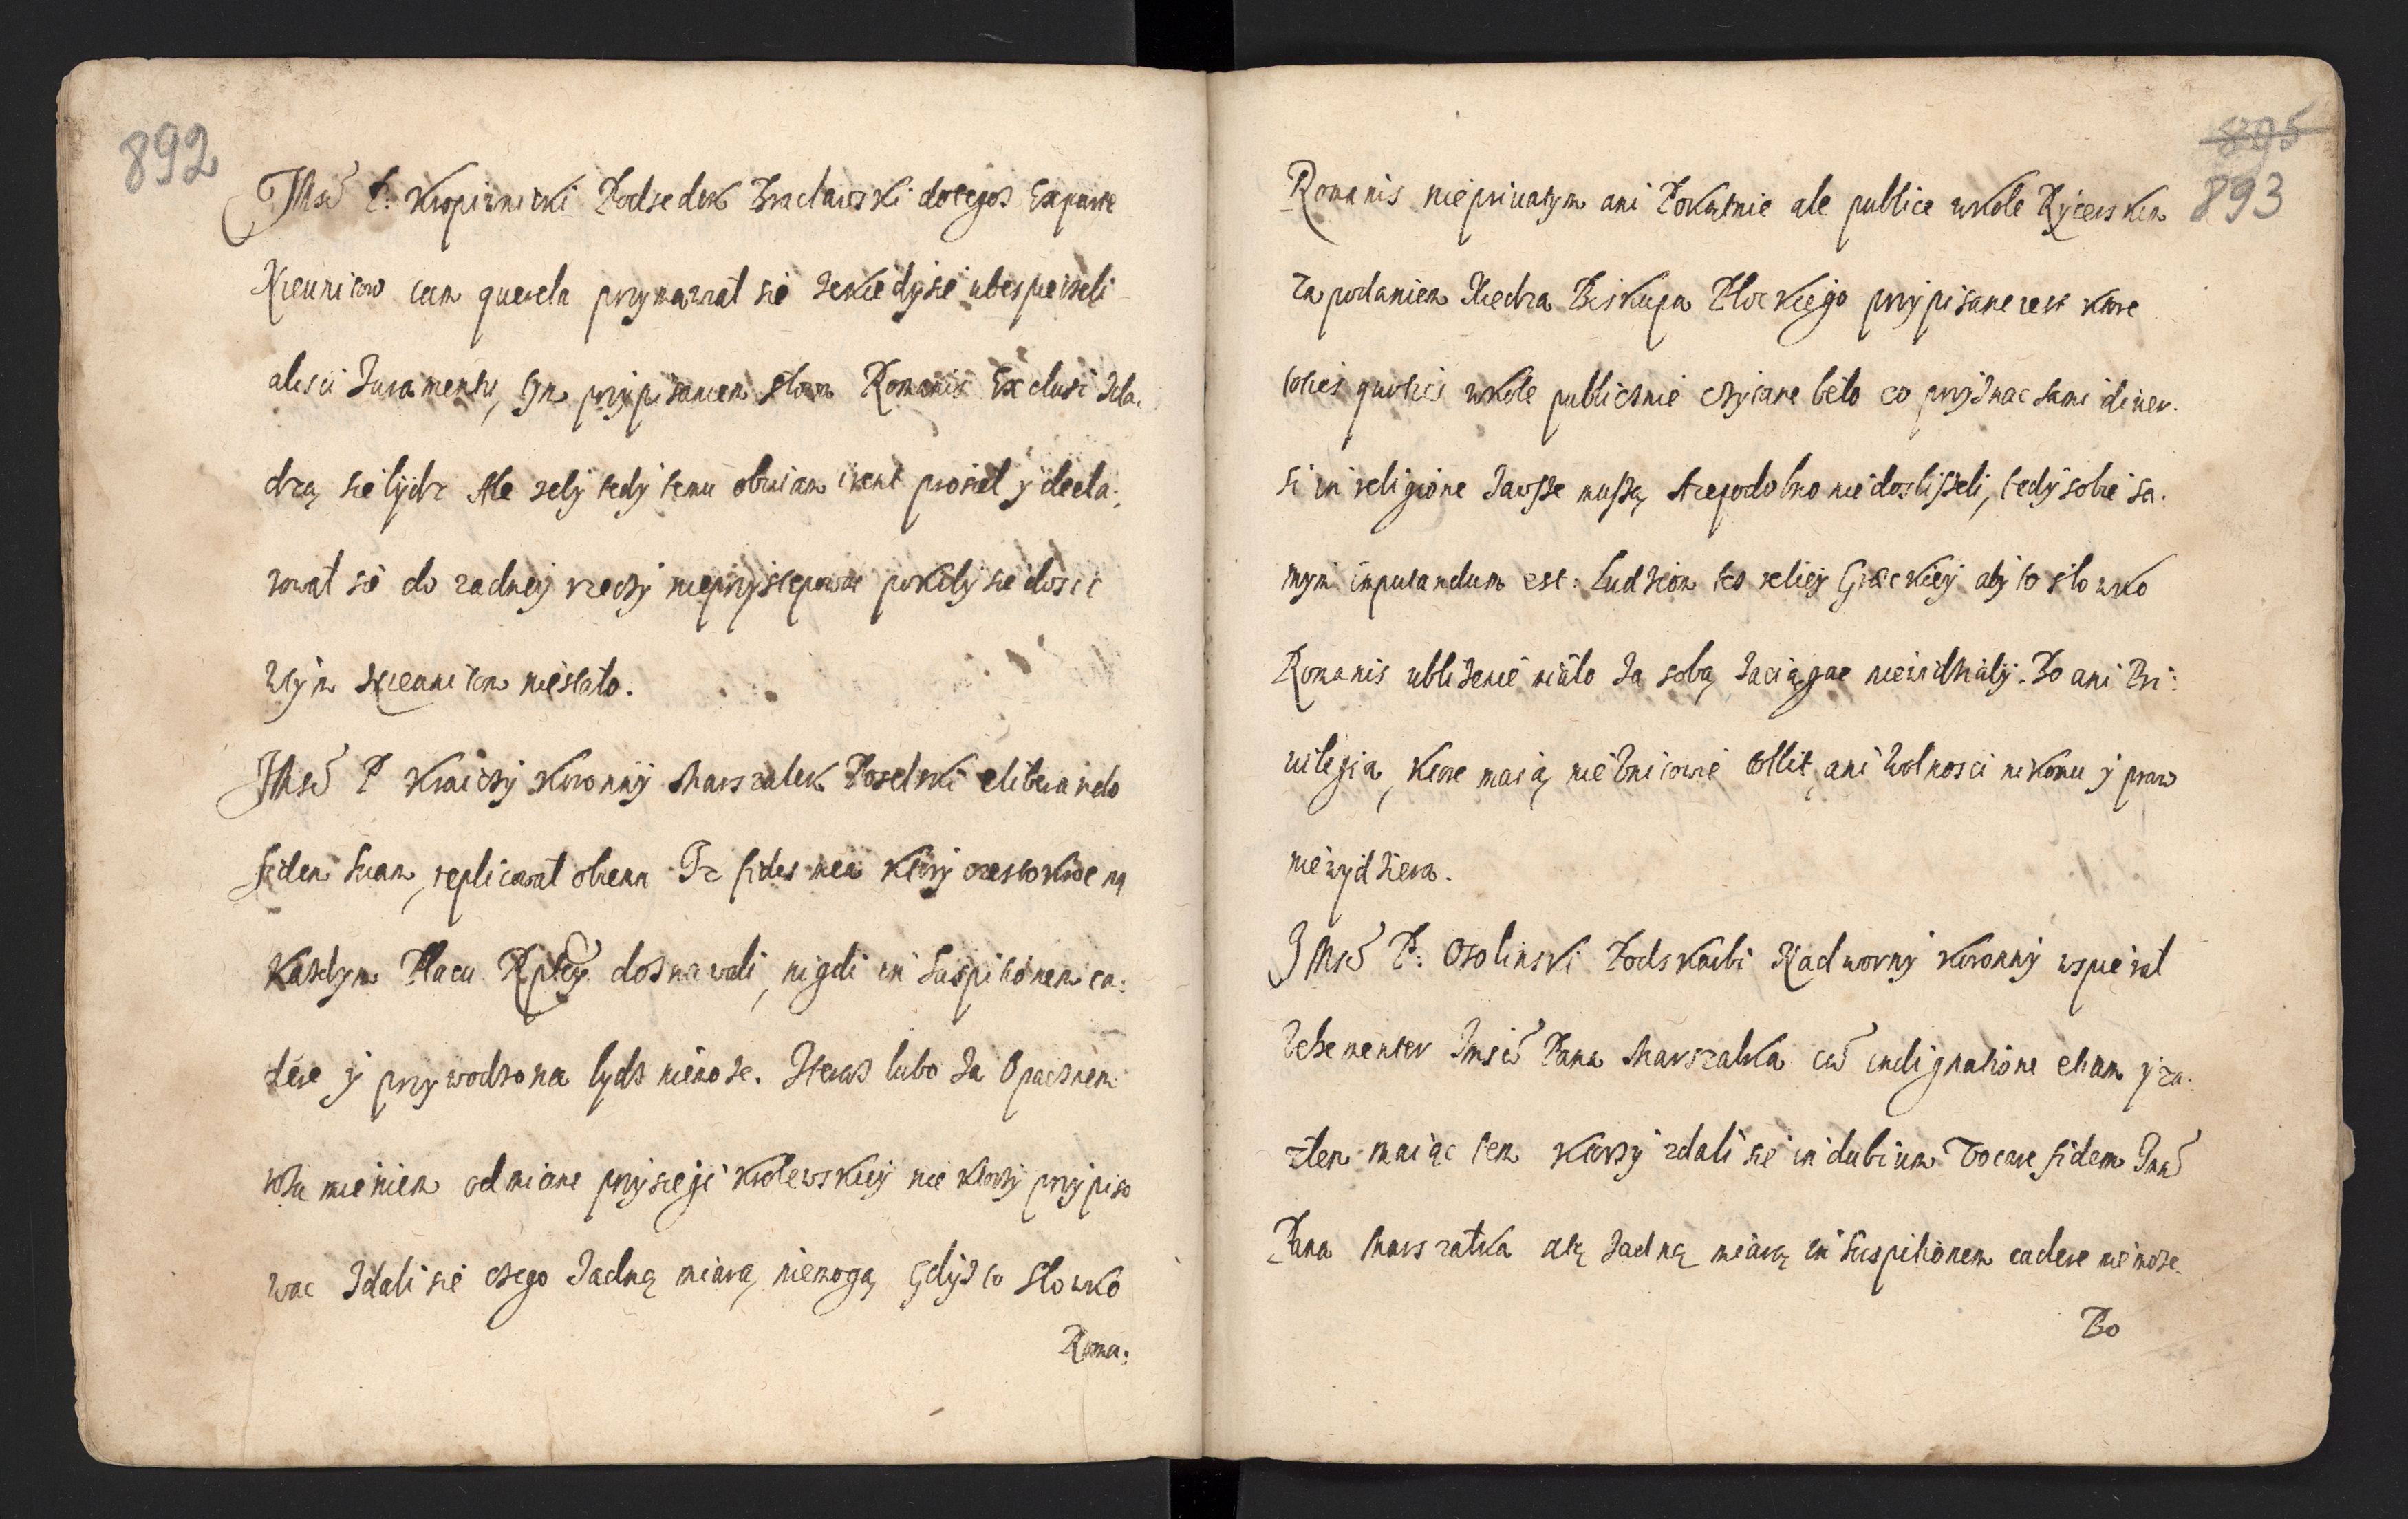 892
JMsć P: Kropiwnicki Podsedek Bracławski dotegosz Ex parte
Nieunitow cum querela przymawiał się zekiedysie ubespieczeli
alisci Juramentu, tym przypisaniem słowa Romanis Exclusi
bydz Ale zeby tedy temu obuiam iretur prosieł y decla:
rował się do zadney rzeczy nieprzystepować pokiby sie dosic
wtym Nieunitom niestało.
JMsć P Kraiczy Koronny Marszałek Poselski elibrando
fidem suam, replicował obema Iz fides mea ktory czestokroc na
Kazdym Placu Rptey doznawali, nigdi in suspitionem ca:
dere y przywodzona bydz niemoze. Iteras lubo za Opacznem
rozumieniem odmiane przysiegi Krolewskiey nie ktorzy przypiso
wac zdali sie czego zadną miarą niemogą gdyz to słowko
Roma:
895
893
Romanis nieprivatym ani Pokątnie ale publice wkole Rycerskim
za podaniem Xiedza Biskupa Płockiego przypisane iest ktore
toties quoties wkole publicznie czytane beło co przyznac sami diver-
si in religione zawsze muszą Azepodobno niedosliszeli, tedy sobie sa-
mym imputandum est: Ludziom tez religiy Graeckiey aby to słowko
Romanis ubliżenie miało za sobą zaciągac niewidziały. Bo ani Pri:
vilegia, ktore maią nieunitowie tollit, ani wolnosci nikomu y praw
niewydziera.
JMsć P: Osolinski Podskarbi Nadworny Koronny wspierał
Vehementer Jmsći Pana Marszałka cū indignatione etiam y za:
złem maiąc tem ktorzy zdali sie in dubium Vocare fidem Jmći
Pana Marszałka ktą zadną miarą in suspitionem cadere niemoze.
Bo